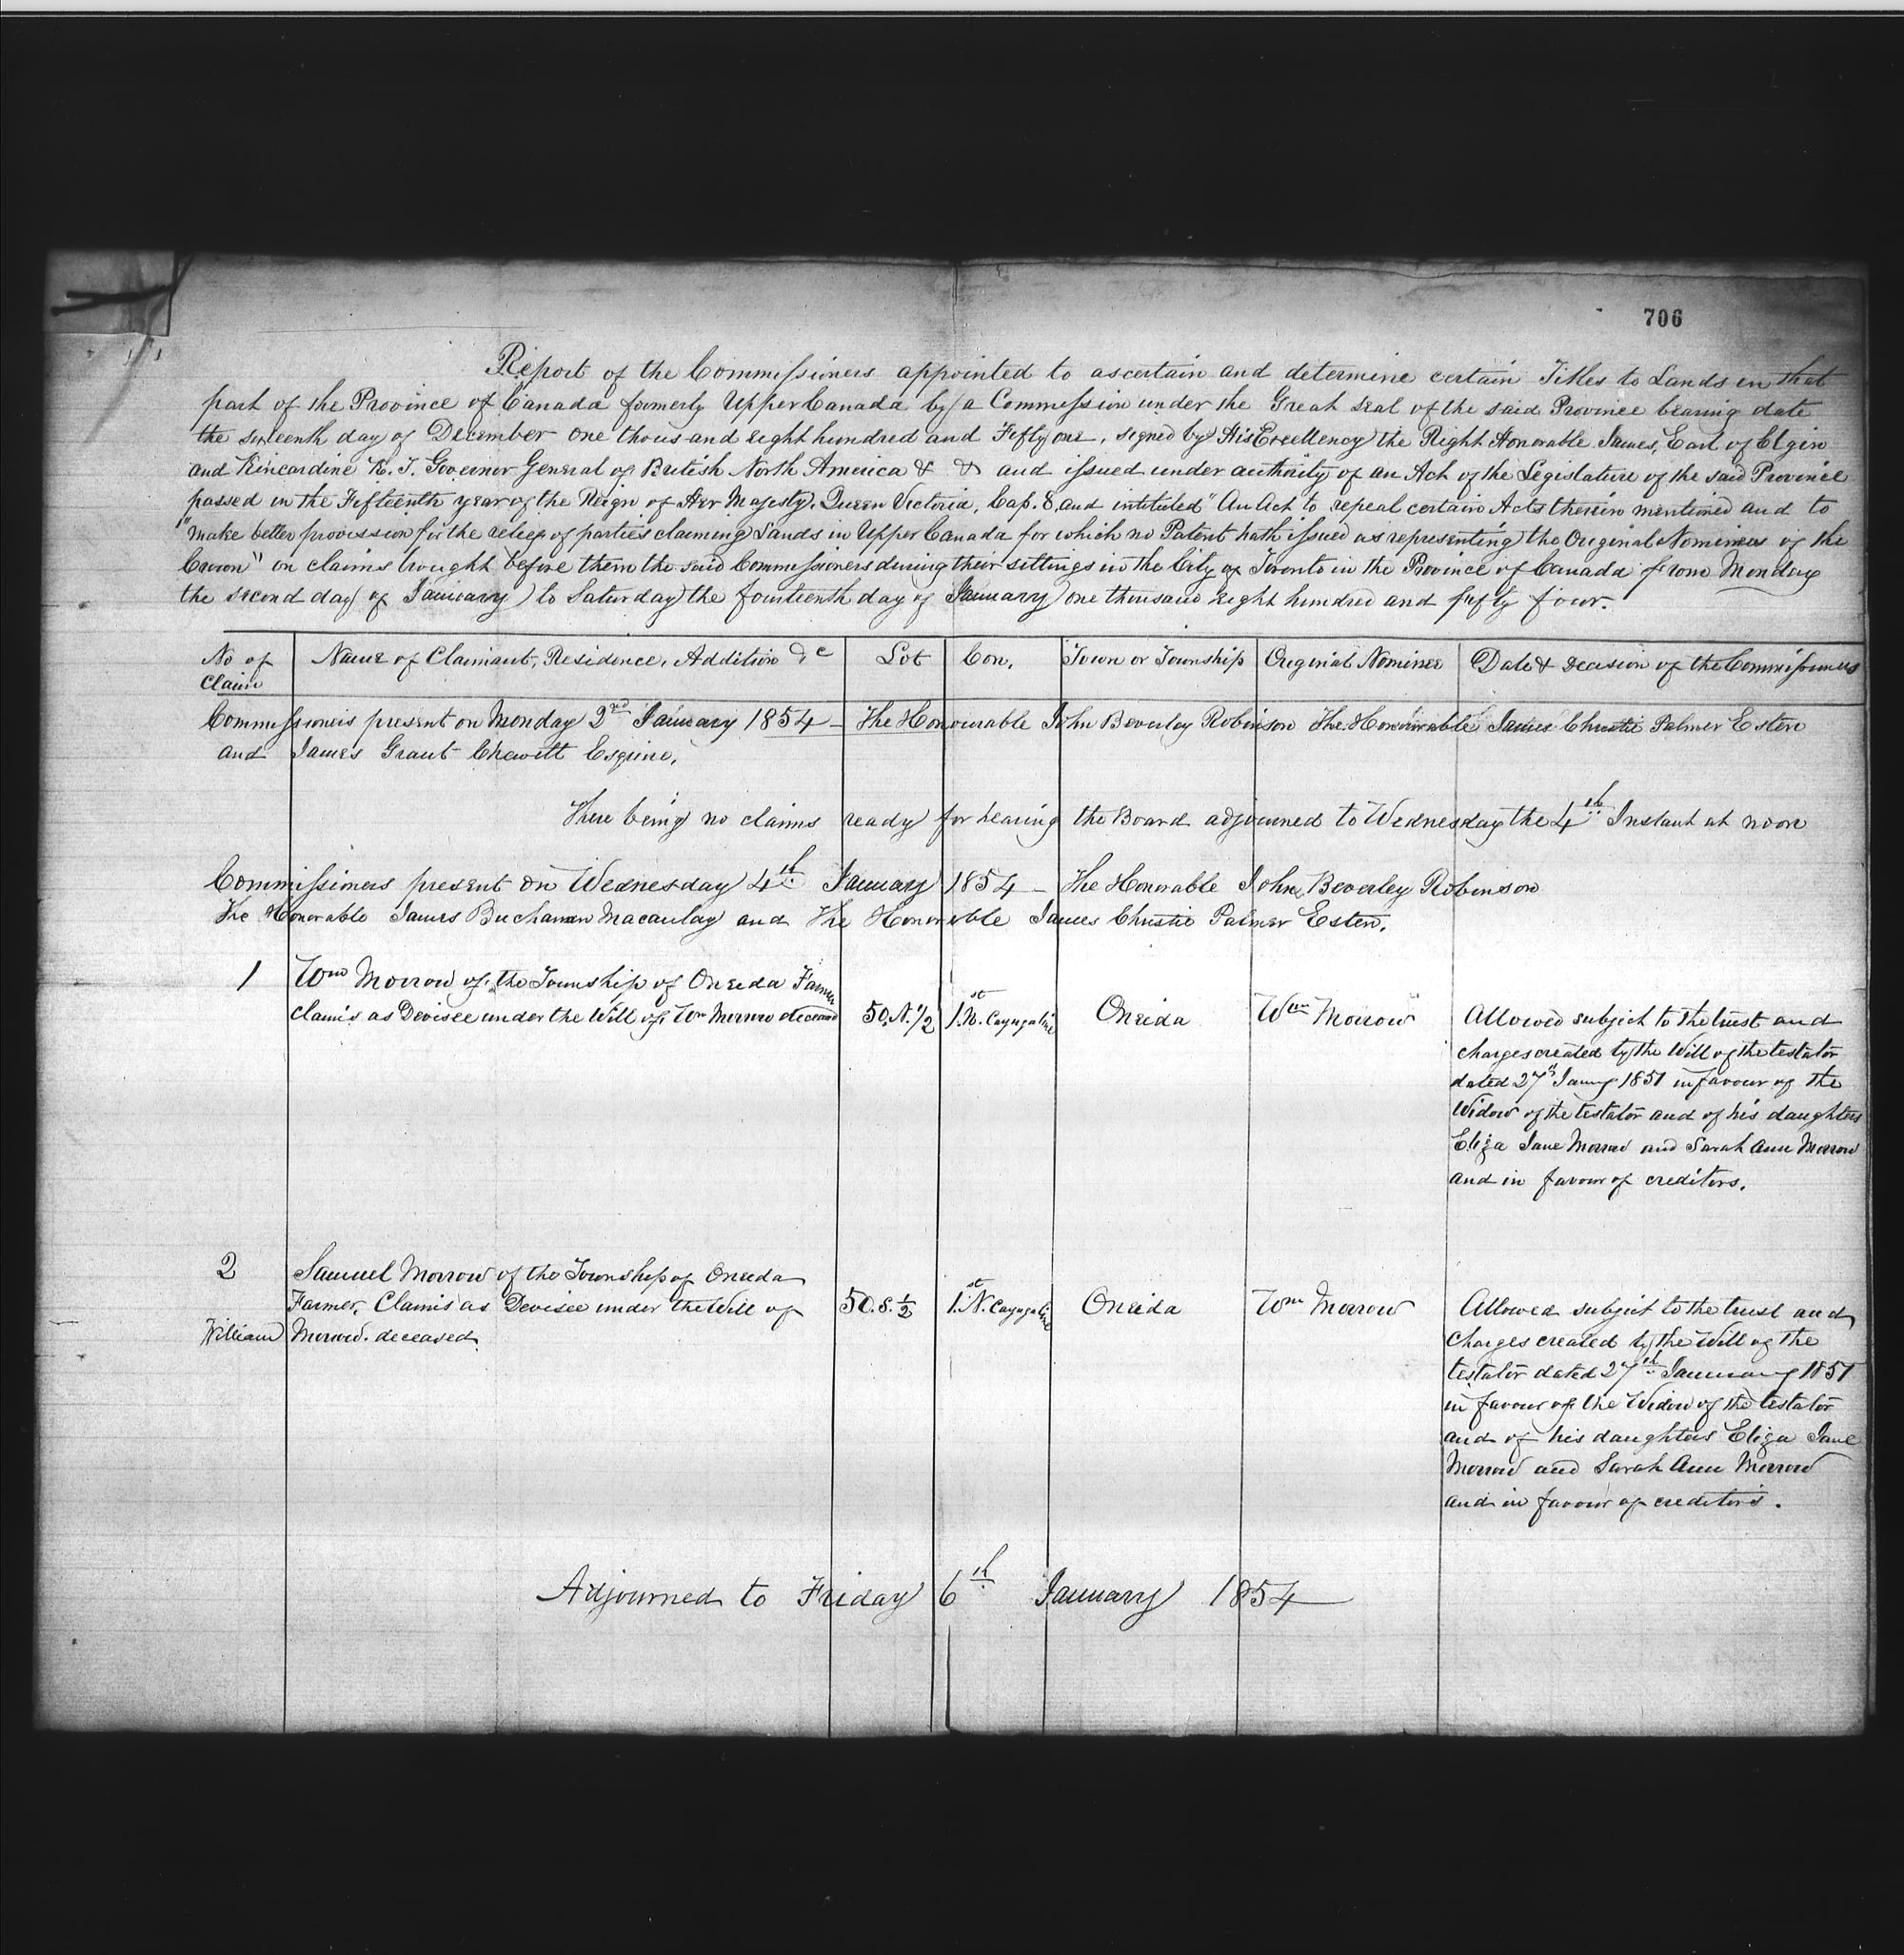 706
Report of the Commissioners appointed to ascertain and determine certain Titles to Lands in that
part of the Province of Canada formerly Upper Canada by a Commission under the Great Seal of the said Province bearing date
the sixteenth day of December one thousand eight hundred and Fifty one, signed by His Excellency the Right Honorable James, Earl of Elgin
and Kincardine K. T. Governor General of British North America & & and issued under authority of an Act of the Legislature of the said Province
passed in the Fifteenth year of the Reign of Her Majesty, Queen Victoria, Cap. 8, and intituled "An Act to repeal certain Acts therein mentioned and to
"make better provission for the relief of parties claiming Lands in Upper Canada for which no Patent hath issued as representing the Original Nominees of the
Crown" on claims brought before them the said Commissioners during their sittings in the City of Toronto in the Province of Canada from Monday
the second day of January to Saturday the fourteenth day of January one thousand eight hundred and fifty four.
No of Claim | Name of Claimant, Residence, Addition &c | Lot | Con. | Town or Township | Original Nominee | Date & decision of the Commissioners
Commissioners present on Monday 2nd January 1854 – The Honourable John Beverley Robinson The Honourable James Christie Palmer Esten
and James Grant Chewett Esquire,
There being no claims ready for hearing the Board adjourned to Wednesday the 4th Instant at noon
Commissioners present on Wednesday 4th January 1854 – The Honorable John Beverley Robinson
The Honorable James Buchanan Macaulay and The Honorable James Christie Palmer Esten.
1
Wm Morrow of the Township of Oneida Farmer
claims as Devisee under the Will of Wm Morrow deceased
50. N. 1/2
1st N. Cayuga line
Oneida
Wm Morrow
Allowed subject to the trust and
charges created by the Will of the testator
dated 27th Jany 1851 in favour of the
Widow of the testator and of his daughters
Eliza Jane Morrow and Sarah Ann Morrow
and in favour of creditors.
2
Samuel Morrow of the Township of Oneida
Farmer, Claims as Devisee under the Will of
William Morrow. deceased.
50. S. 1/2
1st N. Cayuga line
Oneida
Wm Morrow
Allowed subject to the trust and
Charges created by the Will of the
testator dated 27th January 1851
in favour of the Widow of the testator
and of his daughters Eliza Jane
Morrow and Sarah Ann Morrow
and in favour of creditors.
Adjourned to Friday 6th January 1854